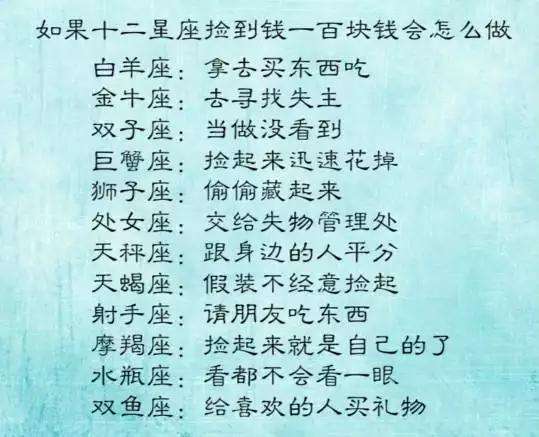 如果十二星座捡到钱一百块钱会怎么做
白羊座：拿去买东西吃
金牛座：去寻找失主
双子座：当做没看到
巨蟹座：捡起来迅速花掉
狮子座：偷偷藏起来
处女座：交给失物管理处
天秤座：跟身边的人平分
天蝎座：假装不经意捡起
射手座：请朋友吃东西
摩羯座：捡起来就是自己的了
水瓶座：看都不会看一眼
双鱼座：给喜欢的人买礼物